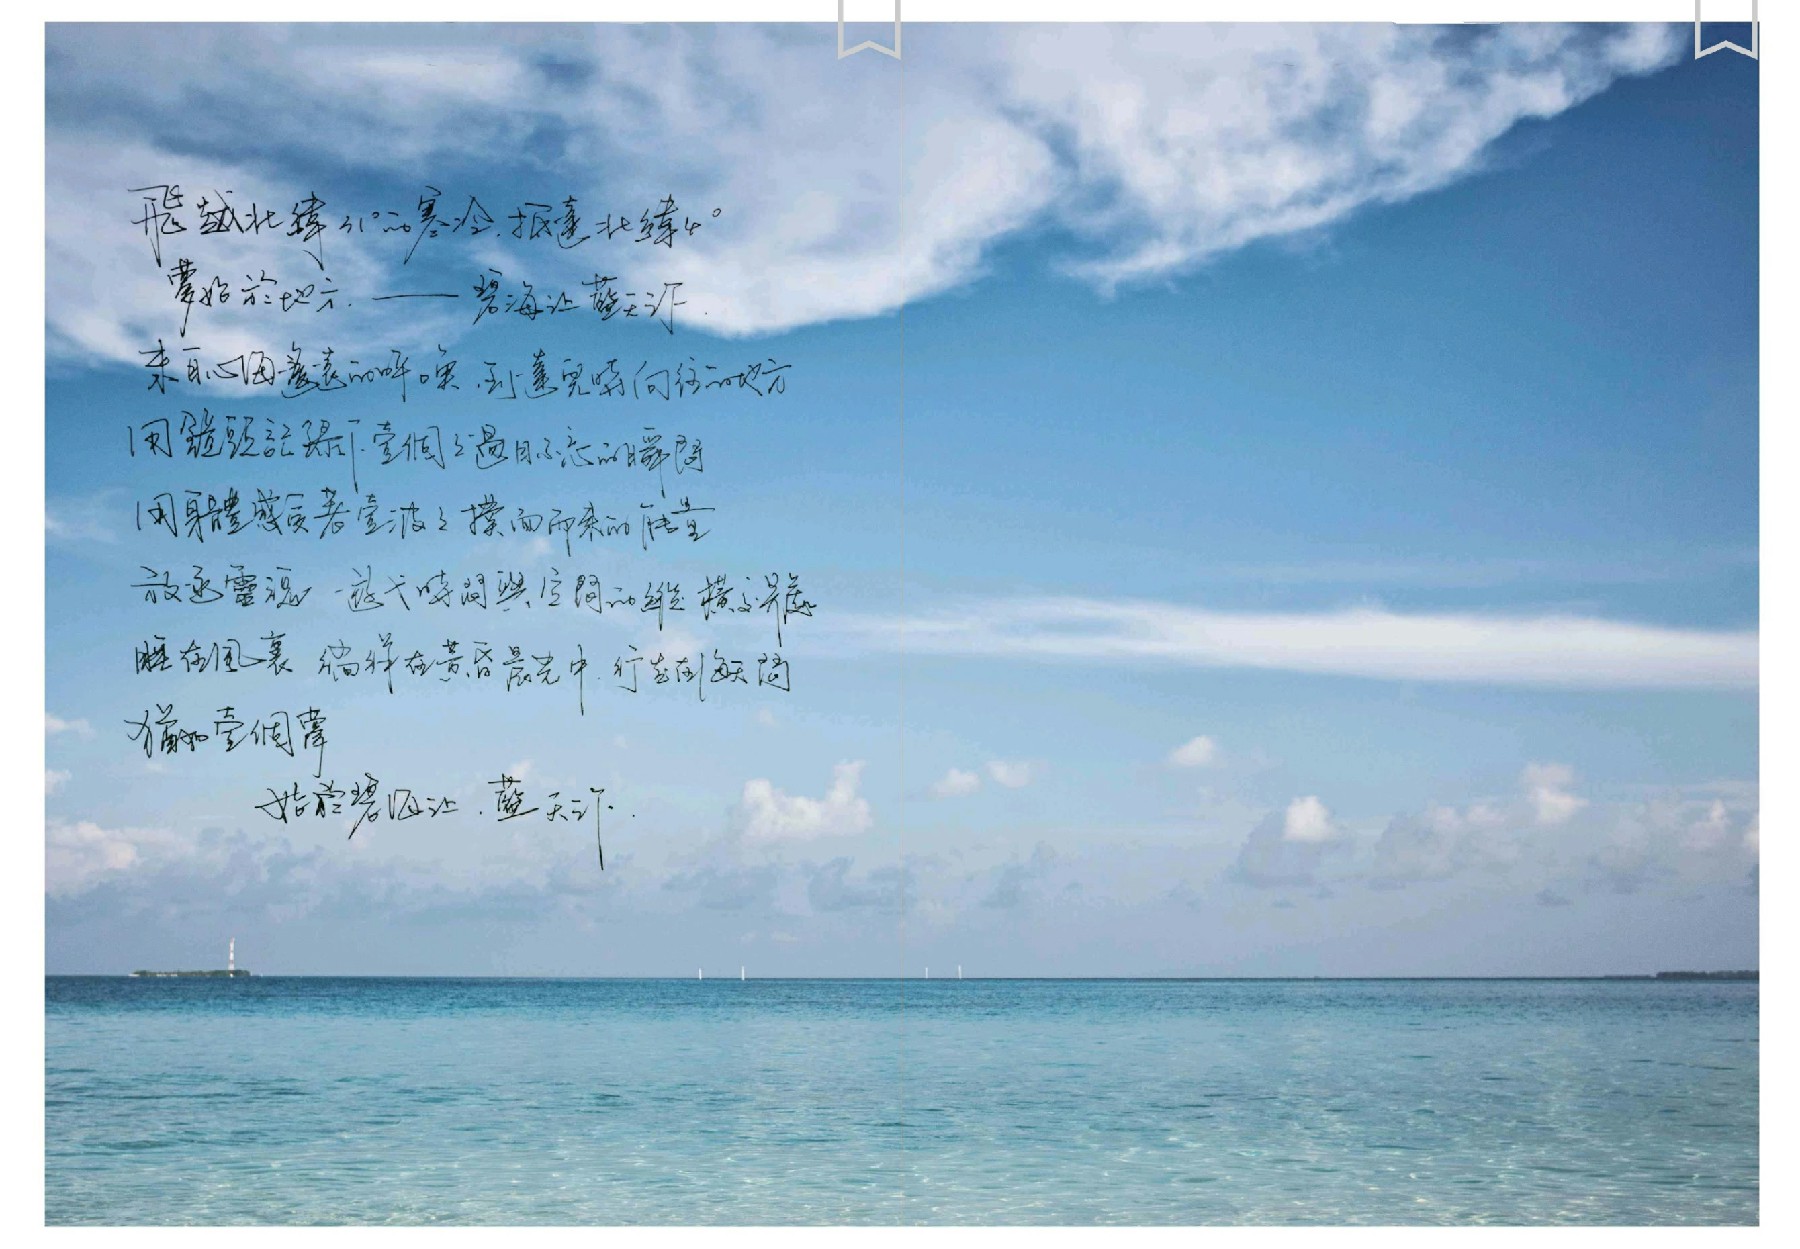 飛越北緯31°的寒冷.抵達北緯4°
夢始於地方.——碧海止藍天涯.
來自心海遙遠的呼喚.到達兒時向往的地方
用鏡頭記錄下壹個個過目不忘的瞬間
用身體感受著壹波波撲面而來的能量
放逐靈魂 時間與空間的縱橫
睡在風裏 徜徉在黃昏晨光中.行走在海天間
猶如壹個夢
始於碧海止.藍天涯.